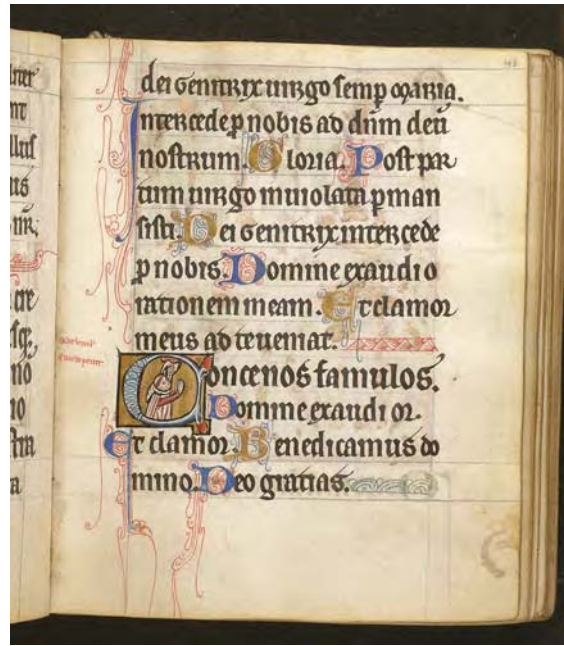 dei genitrix uirgo semp maria.
Intercede p nobis ad dnm deu
nostrum. Gloria. Post par
tum uirgo inuiolata p man
sisti. Dei genitrix intercede
p nobis. Domine exaudi o
rationem meam. Et clamor
meus ad te ueniat.
Concenos famulos.
Domine exaudi or.
Et clamor. Benedicamus do
mino. Deo gratias.